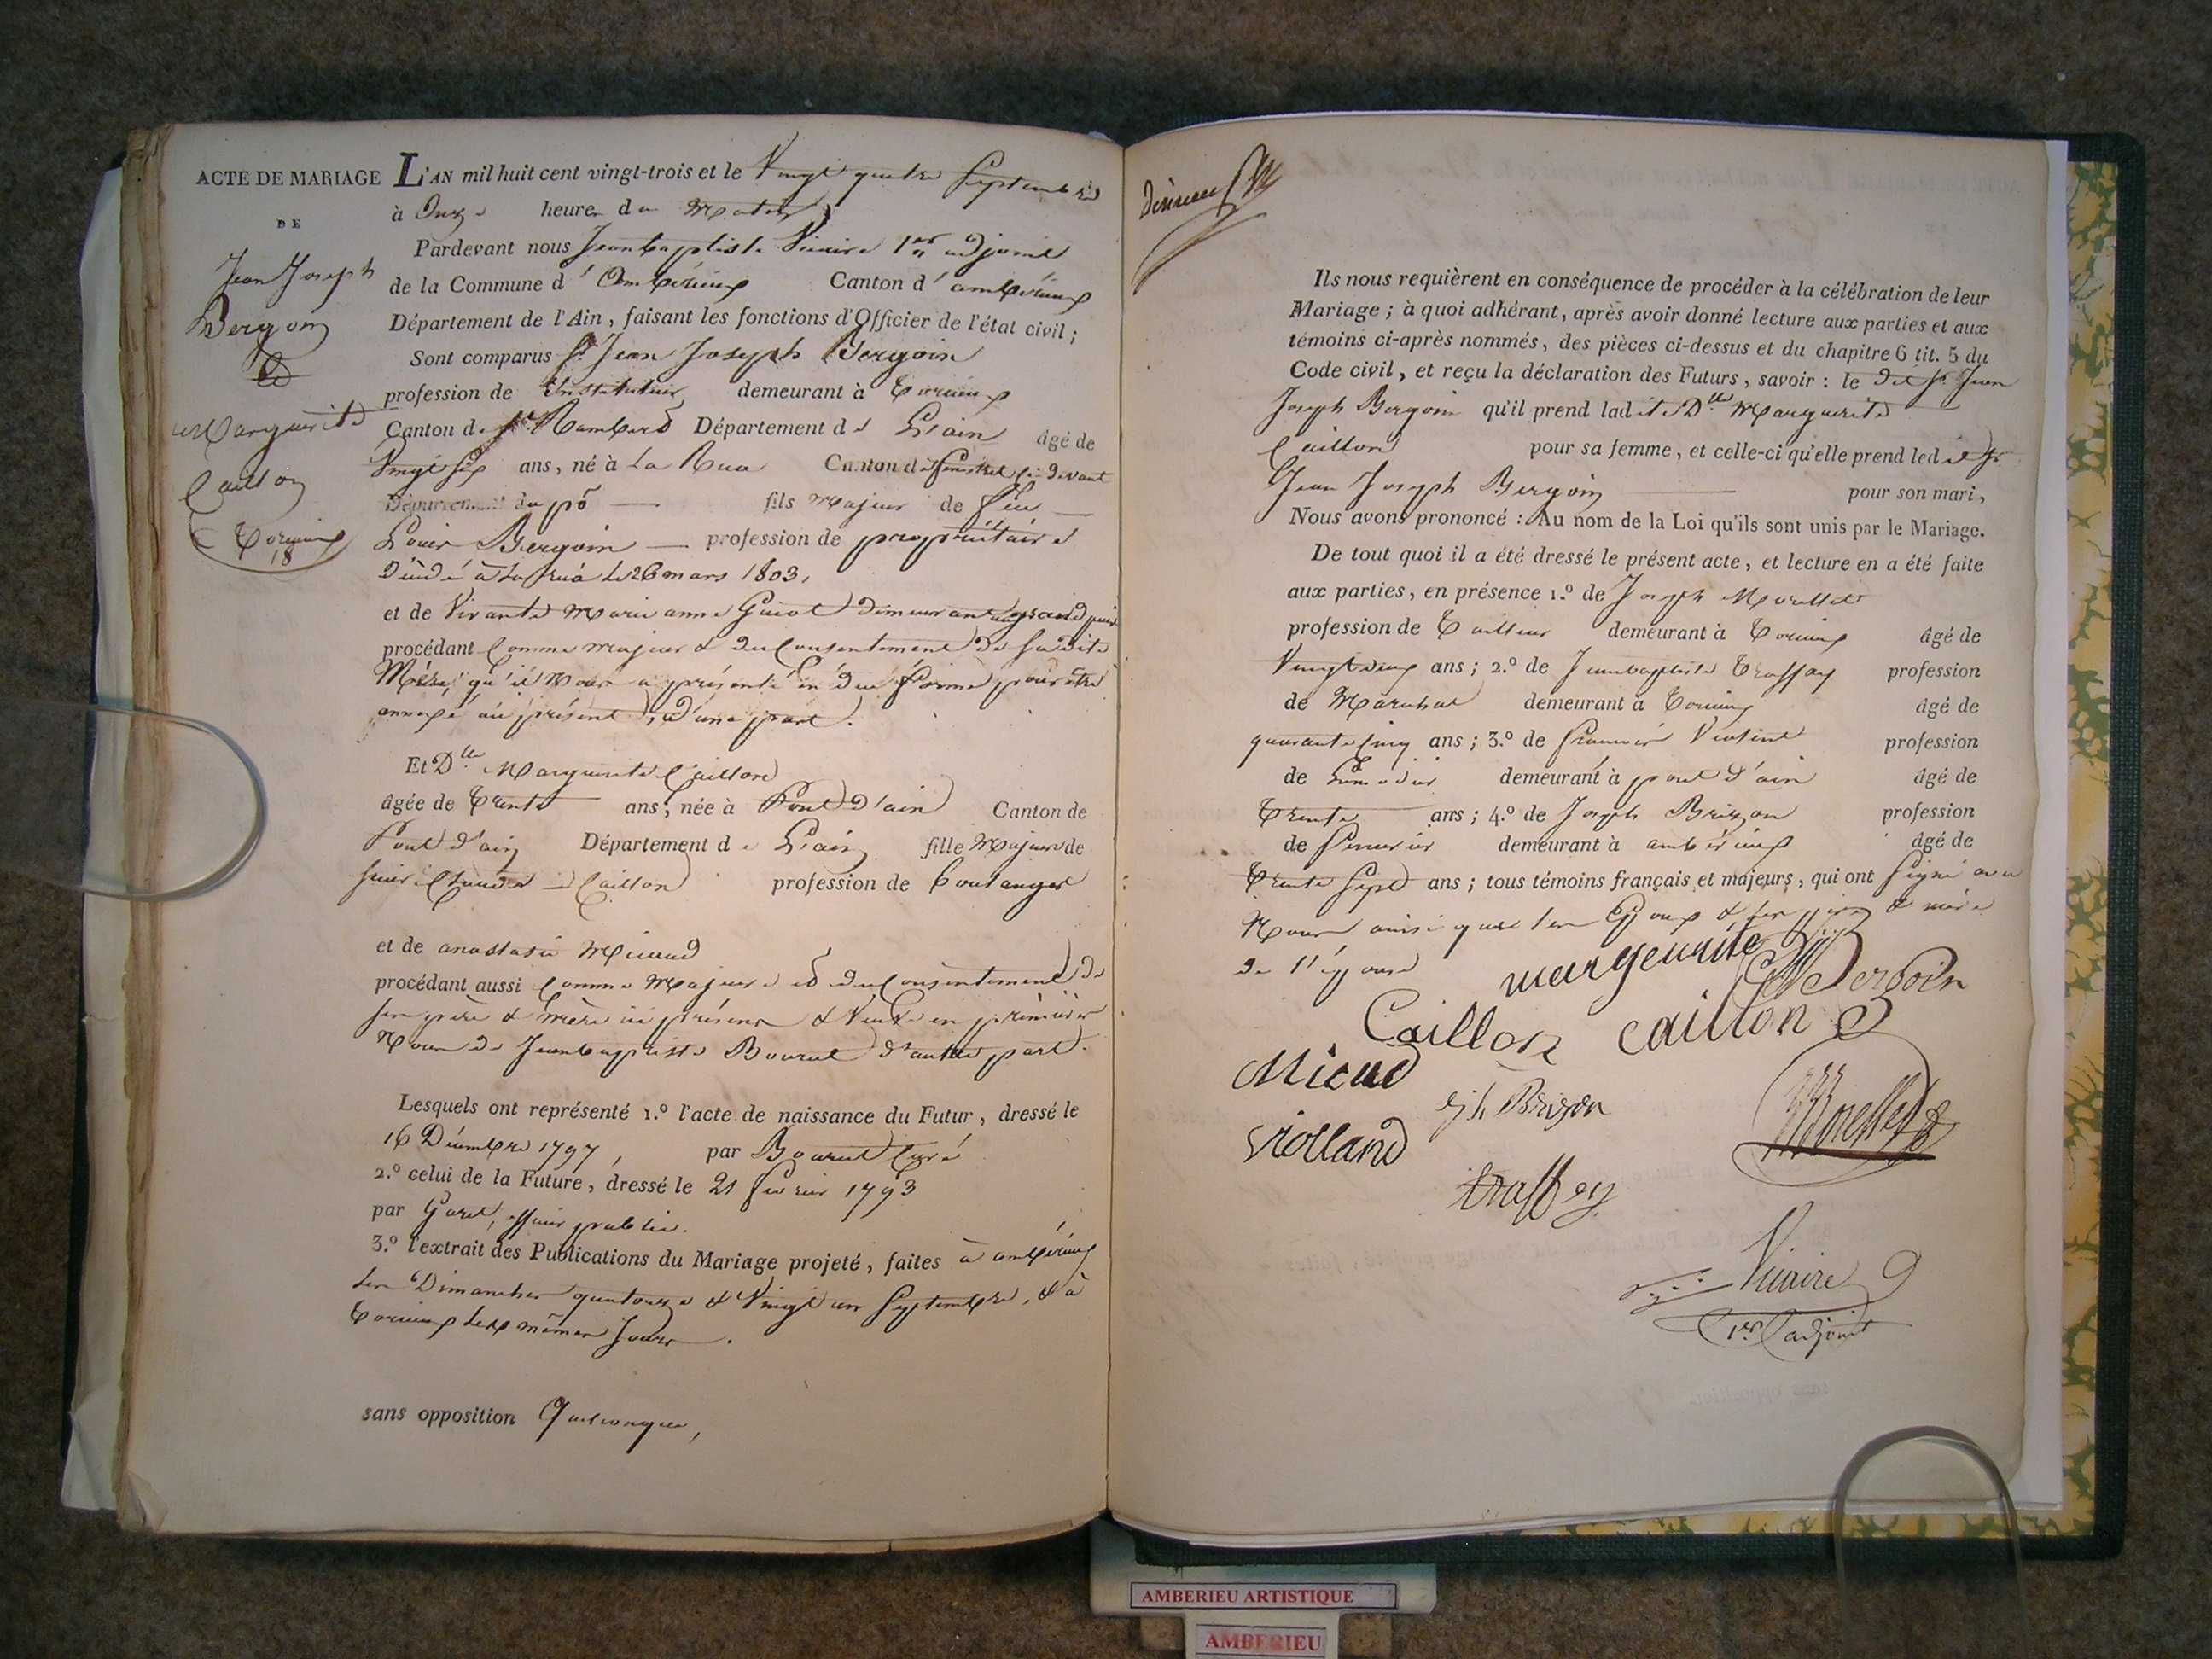 ACTE DE MARIAGE
DE
Jean Joseph
Bergoin
&
Marguerite
Caillon
Torcieux
18
L'AN mil huit cent vingt-trois et le Vingt quatre Septembre
à Onze heures du Matin
Pardevant nous Jeanbaptiste Vicaire 1er adjoint
de la Commune d'Ambérieux Canton d'ambérieux
Département de l'Ain, faisant les fonctions d'Officier de l'état civil;
Sont comparus Sr. Jean Joseph Bergoin
profession de Instituteur demeurant à Torcieux
Canton de St. Rambert Département de L'ain âgé de
Vingt six ans, né à La Rua Canton de fenestrel ci-devant
Département du pô — fils Majeur de feu —
Louis Bergoin — profession de propriétaire
Décédé à La rua le 26 mars 1803,
et de Vivante Marie anne Guiot demeurant
procédant Comme majeur & du Consentement de sa dite
Mère, qu'il Nous a présenté en due forme pour être
annexé au présent, d'une part.
Et Dlle Marguerite Caillon
âgée de Trente ans, née à Pont d'ain Canton de
Pont d'ain Département de L'ain fille Majeure de
sieur Claude Caillon profession de boulanger
et de anastasie Micud
procédant aussi Comme Majeure et du Consentement de
ses père & mère ici présens & Veuve en premières
Noces de Jeanbaptiste Bourut d'autre part.
Lesquels ont représenté 1.º l'acte de naissance du Futur, dressé le
16 Décembre 1797, par Bourcet Curé
2.º celui de la Future, dressé le 21 fevrier 1793
par Garet, officier public.
3.º l'extrait des Publications du Mariage projeté, faites à ambérieux
les Dimanches quatorze & Vingt un Septembre, & à
Torcieux les mêmes Jours.
sans opposition Quelconque,
Ils nous requièrent en conséquence de procéder à la célébration de leur
Mariage; à quoi adhérant, après avoir donné lecture aux parties et aux
témoins ci-après nommés, des pièces ci-dessus et du chapitre 6 tit. 5 du
Code civil, et reçu la déclaration des Futurs, savoir: le dit Sr. Jean
Joseph Bergoin qu'il prend ladite Dlle Marguerite
Caillon pour sa femme, et celle-ci qu'elle prend ledit Sr.
Jean Joseph Bergoin — pour son mari,
Nous avons prononcé: Au nom de la Loi qu'ils sont unis par le Mariage.
De tout quoi il a été dressé le présent acte, et lecture en a été faite
aux parties, en présence 1.º de Joseph Morellet
profession de Tailleur demeurant à Torcieux âgé de
Vingt deux ans; 2.º de Jeanbaptiste Traffay profession
de Maréchal demeurant à Torcieux âgé de
quarante cinq ans; 3.º de profession
de demeurant à pont d'ain âgé de
Trente ans; 4.º de Joseph Brizon profession
de demeurant à ambérieux âgé de
Trente Sept ans; tous témoins français et majeurs, qui ont signé avec
Nous ainsi que les Epoux & les père & mère
de l'épouse
margeurite JJBergoin
Caillon caillon
Micud
jh Brizon
Morellet
violland
traffey
Vicaire
1er adjoint
AMBERIEU ARTISTIQUE
AMBERIEU